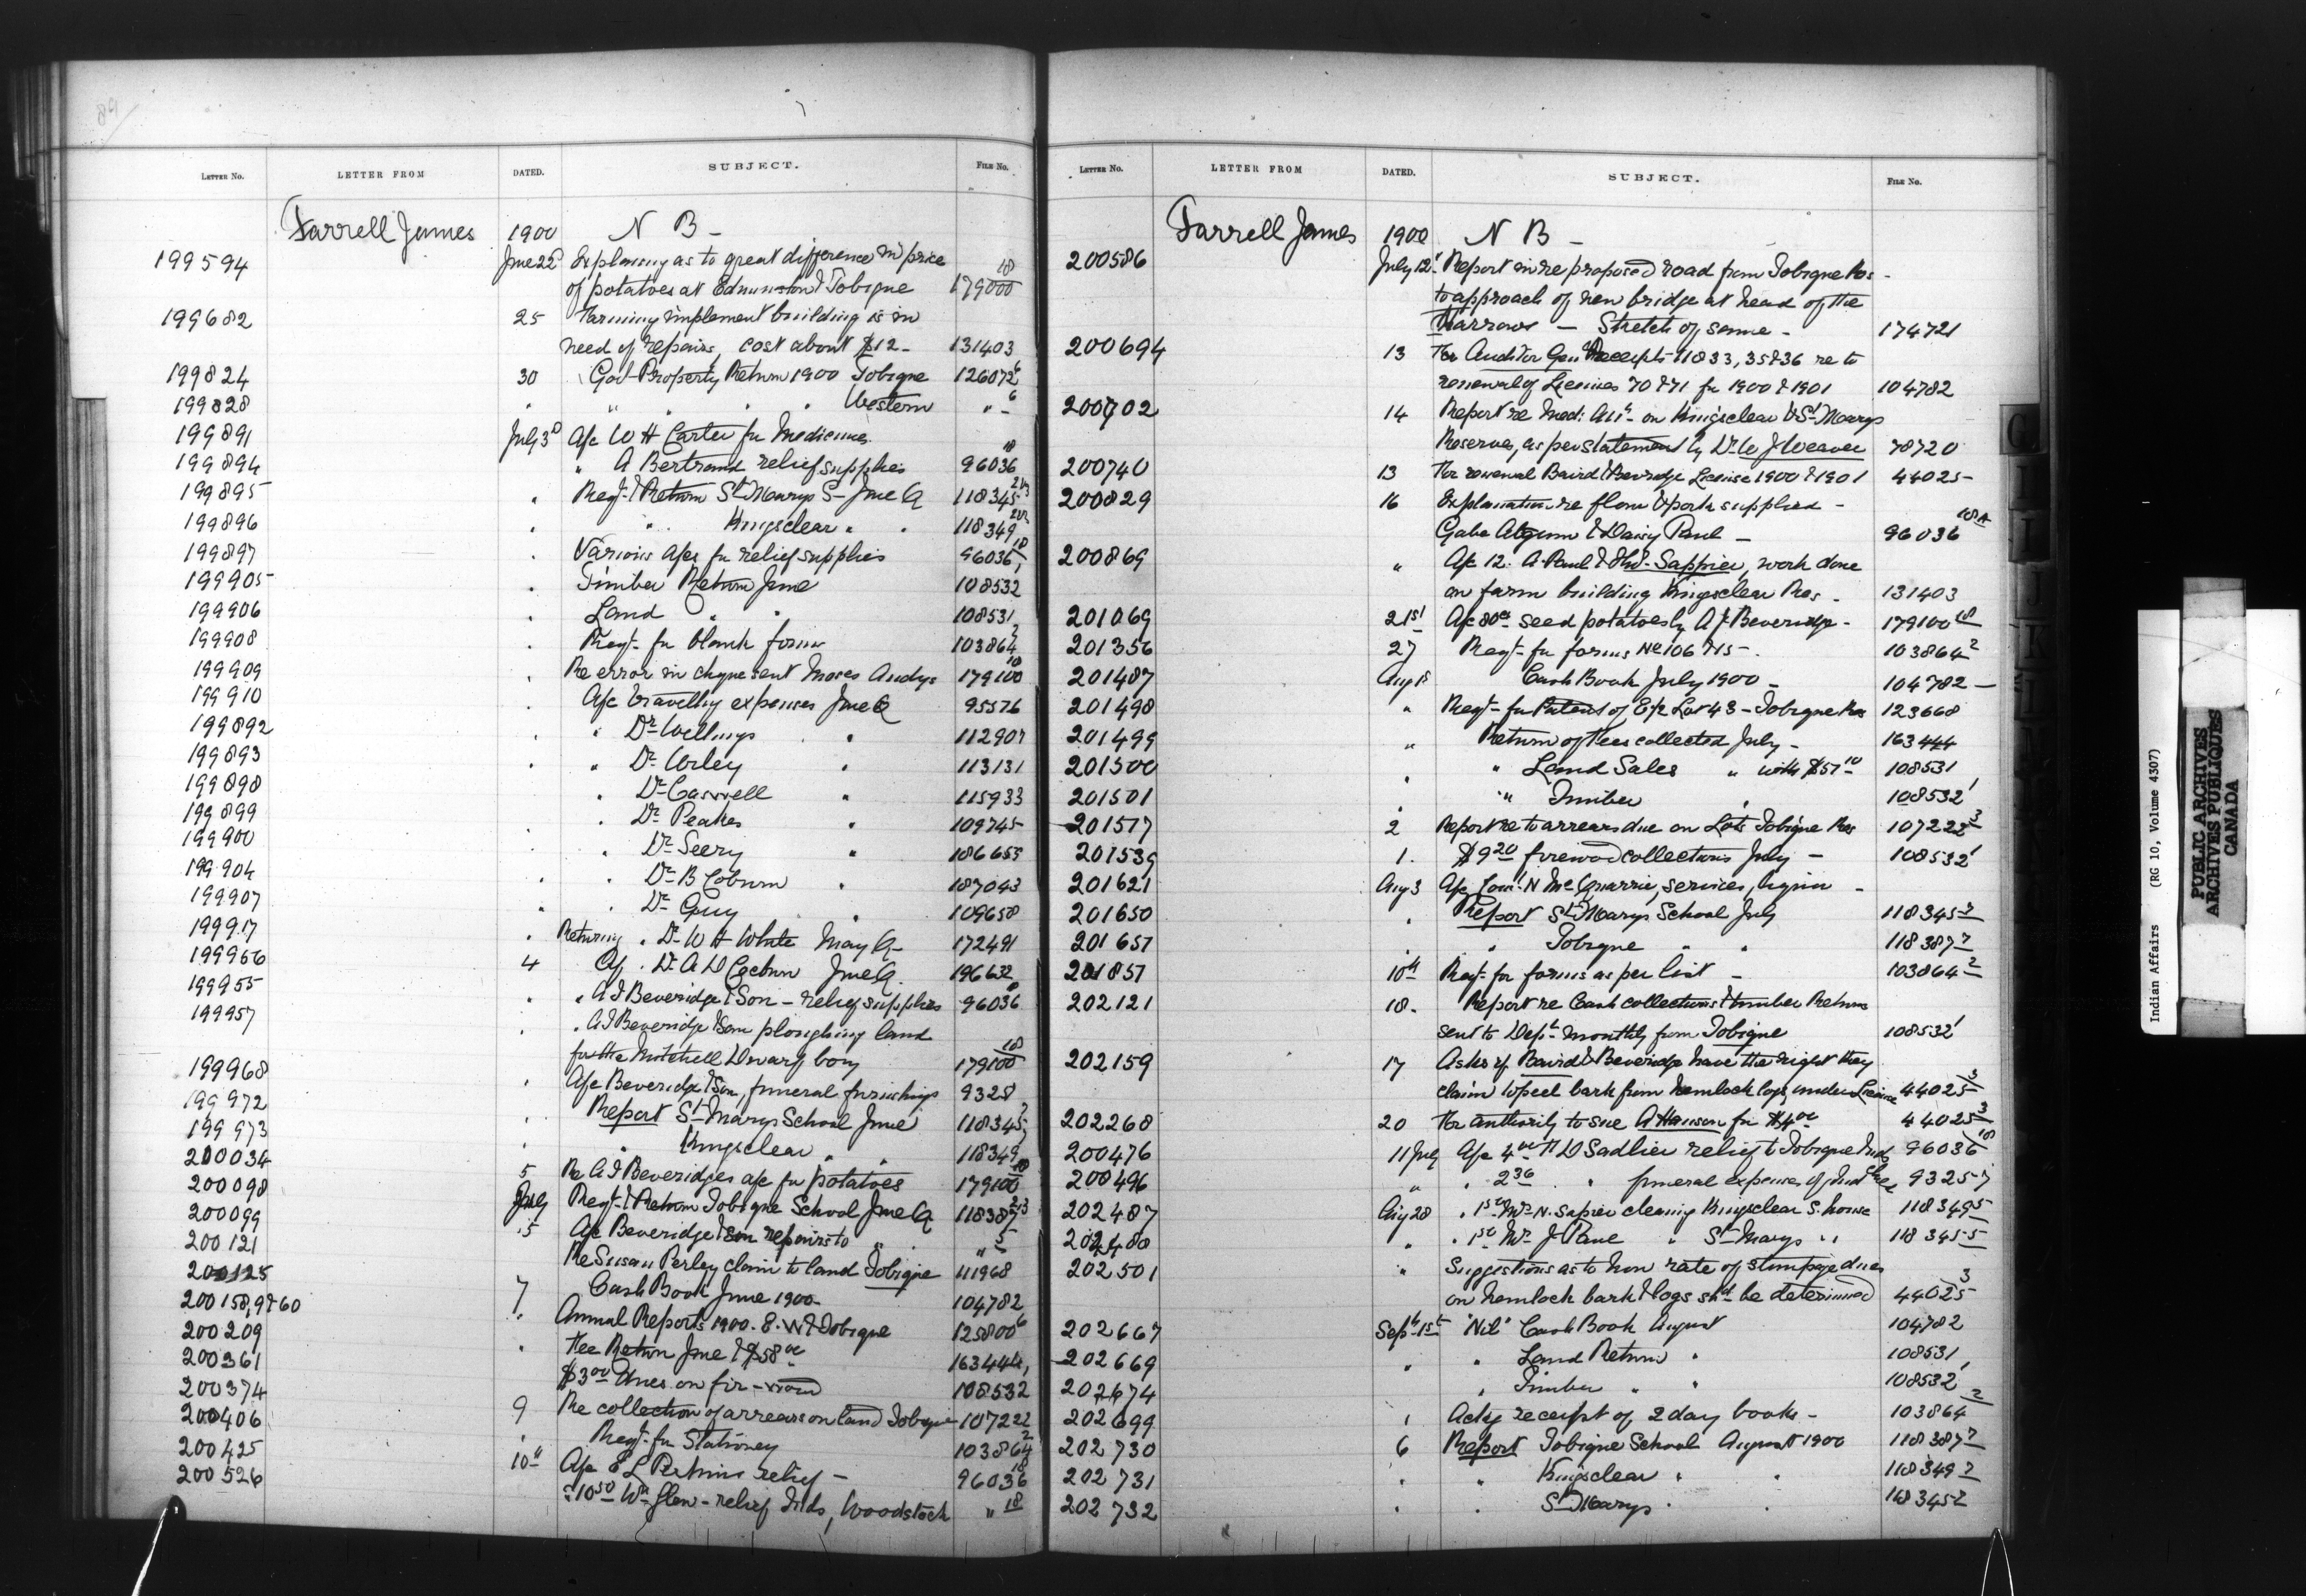 89
LETTER NO. LETTER FROM DATED. SUBJECT. FILE NO.
Farrell James 1900 N B -
199594 June 22 Explaining as to great difference in price
of potatoes at Edmunston & Tobique 179000 18
199682 25 Farming implement building is in
need of repairs, cost about $12 - 131403
199824 30 Govt Property Return 1900 Tobique 126072 6
199828 " " " " Western " - 6
199891 July 3d A/c W H Carter for Medicines
199894 " A Bertrand relief supplies 96036 18
199895 " Reqt & Return St Marys S - June Q 118345
199896 " " Kingsclear " " 118349
199897 " Various a/cs for relief supplies 96036 18
199905 " Timber Return June 108532 1
199906 " Land " " 108531
199908 " Reqt for blank forms 103864 2
199909 " Re error in cheque sent Moses Andys 179100 18
199910 A/c travelling expenses June Q 95576
199892 " " Dr Wellings " 112907
199893 " " Dr Urley " 113131
199898 " Dr Caswell " 115933
199899 " Dr Peakes " 109745
199900 " " Dr Seery " 186653
199904 " " Dr B Coburn " 187043
199907 " " Dr Guy " 109658
199917 " Returning " Dr W H White May Q - 172491
199966 4 A/c " Dr A D June Q. 196632
199955 " " A J Beveridge & Son - relief supplies 96036 18
199957 " " A J Beveridge & Son ploughing land
for the Mitchell boy 179100 18
199968 " A/c Beveridge & Son, funeral furnishings 9328
199972 " Report St Marys School June 118345 7
199973 " " Kingsclear " " 118349 7
200034 5 Re A J Beveridges a/c for potatoes 179100 18
200098 July Reqt & Return Tobique School June Q 118387 2/3
200099 5 A/c Beveridge & Son repairs to " " " 5
200121 Re Susan Perley claim to land Tobique 41968
200125 7 Cash Book June 1900 - 104782
200158,9&60 " Annual Reports 1900 - E. W & Tobique 125800 6
200209 " Fee Return June & $58 00 163444
200361 $3 00 dues on fire-wood 108532 1
200374 9 Re collection of arrears on land Tobique 107222
200406 " Reqt for Stationery 103864 2
200425 10th A/c E L Perkins relief - 96036 18
200526 " 10 50 Wm Glew - relief Inds, Woodstock " 18
LETTER NO. LETTER FROM DATED. SUBJECT. FILE NO.
Farrell James 1900 N B -
200586 July 12th Report in re proposed road from Tobique Res -
to approach of new bridge at head of the
Narrows - Sketch of same - 174721
200694 13 For Auditor Genl Receipts 11833, 35 & 36 re to
renewal of Licenses 70 & 71 for 1900 & 1901 104782
200702 14 Report re Med: Att - on Kingsclear & St Marys
Reserves, as per statement by Dr W J Weaver 78720
200740 13 For renewal Baird & Beveridge License 1900 & 1901 44025 -
200829 16 Explanation re flour & pork supplied -
Gabe & Daisy Paul - 96036 18A
200869 " A/c 12. A. Paul & Sappier, work done
on farm building Kingsclear Res - 131403
201069 21st A/c 80 00 seed potatoes by A J Beveridge - 179100 18
201356 27 Reqt for forms No 106 & 15 - 103864 2
201487 Aug 1st Cash Book July 1900 - 104782 -
201498 " Reqt for Patent of E/2 Lot 43 - Tobique Res 123668
201499 " Return of Fees collected July - 163444
201500 " " Land Sales " with $57 10 108531
201501 " " Timber " 108532 1
201517 2 Report re to arrears due on Lots Tobique Res 107222 3
201539 1. $9 20 firewood collections July - 108532 1
201621 Aug 3 A/c N McQuarrie, services, -
201650 " Report St Marys School July 118345 7
201657 " " Tobique " " 118387 7
201857 10th Reqt for forms as per list - 103864 2
202121 18. Report re Cash collections & timber Return
sent to Dept monthly from Tobique 108532 1
202159 17 Asks if Baird & Beveridge have the right they
claim to peel bark from hemlock logs, under License 44025 3
202268 20 For authority to sue A Hanson for $4 00 44025 3
200476 11 July A/c 4 00 H D Sadlier relief to Tobique Inds 96036 18
200496 " " 2 36 " funeral expenses of Indn 9325-7
202487 Aug 28 " 1 50 Mrs N. Sapier cleaning Kingsclear S. house 118349 5
202488 " " 1 50 Mrs J " St Marys " " 118345 5
202501 " Suggestions as to how rate of stumpage dues
on hemlock bark & logs shd be determined 44025 3
202667 Septr 1st "Nil" Cash Book August 104782
202669 " " Land Return " 108531
202674 " Timber " " 108532 1
202699 1 Ackg receipt of 2 day books - 103864 2
202730 6 Report Tobique School August 1900 118387 7
202731 " " Kingsclear " " 118349 7
202732 " " St Marys " " 118345 7
Indian Affairs (RG 10, Volume 4307)
PUBLIC ARCHIVES
ARCHIVES PUBLIQUES
CANADA